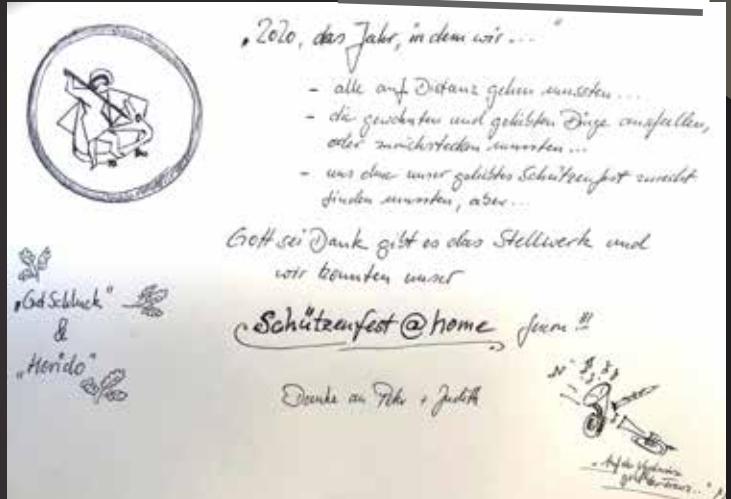 „2020, das Jahr, in dem wir ... "
- alle auf Distanz gehen mussten ...
- die gewohnten und geliebten Dinge ausfallen,
oder zurückstecken mussten ...
- uns ohne unser geliebtes Schützenfest zurecht
finden mussten, aber ...
Gott sei Dank gibt es das Stellwerk und
wir konnten unser
Schützenfest @ home feiern !!!
Danke an + Judith
„Gut Schluck"
&
„Horrido"
„Auf der